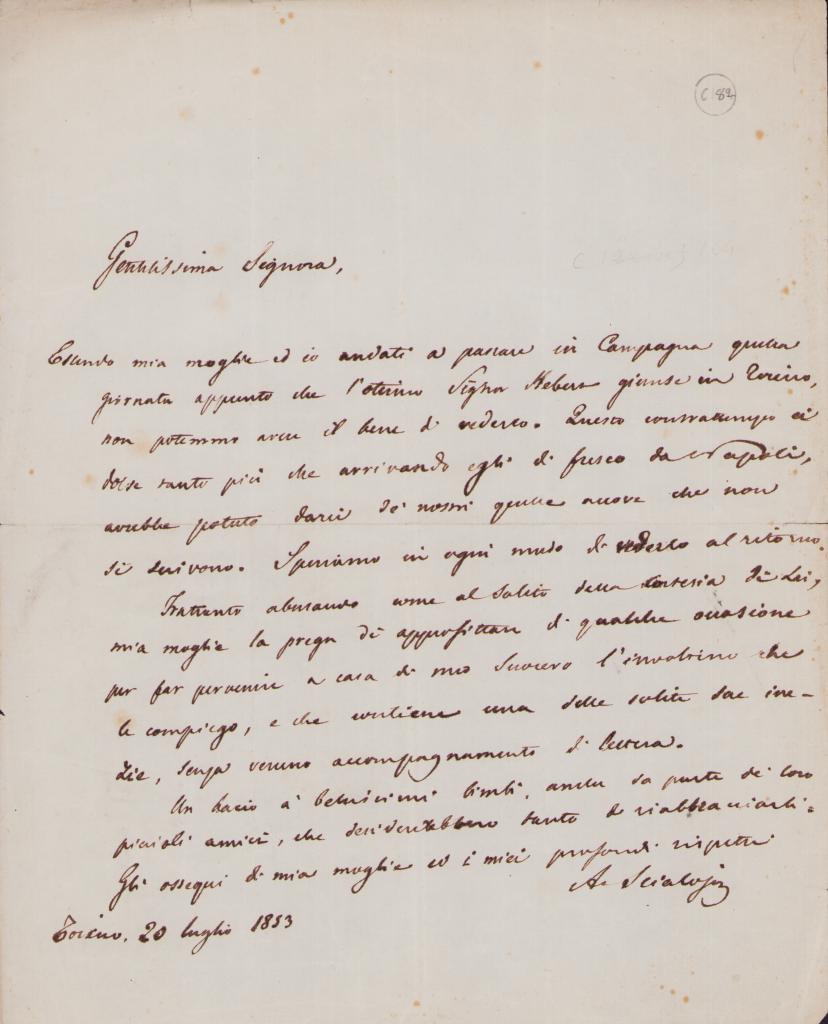 C 82
Gentilissima Signora,
Essendo mia moglie ed io andati a passare in Campagna quella
giornata appunto che l'ottimo Signor Hebert giunse in Torino,
non potemmo avere il bene di vederlo. Questo contrattempo ci
dolse tanto più che arrivando egli di fresco da Napoli,
avrebbe potuto darci de' nostri quelle nuove che non
si scrivono. Speriamo in ogni modo di vederlo al ritorno.
Frattanto abusando come al solito della cortesia di Lei,
mia moglie la prega di approfittare di qualche occasione
per far pervenire a casa di mio Suocero l'involtino che
le compiego, e che contiene una delle solite sue ine-
zie, senza veruno accompagnamento di lettera.
Un bacio a' bellissimi bimbi, anche da parte de' loro
piccioli amici, che desidererebbero tanto di riabbracciarli.
Gli ossequi di mia moglie ed i miei profondi rispetti
A. Scialoja
Torino, 20 luglio 1853